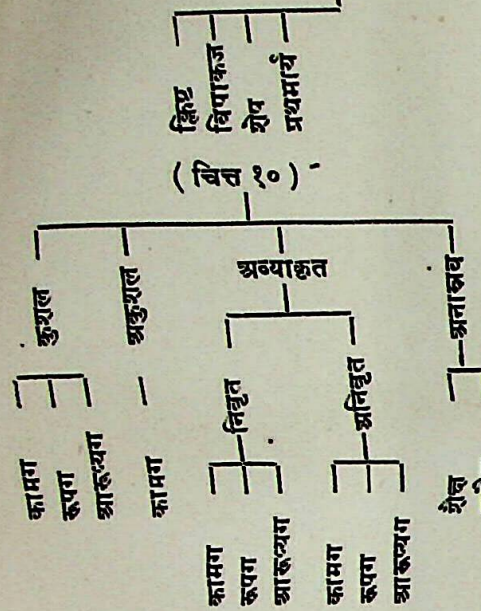 क्लिष्ट
विपाकज
शेष
प्रथमार्य
(चित्त १०)
कुशल
अकुशल
अव्याकृत
अनास्रव
निवृत
अनिवृत
कामग
रूपग
आरूप्यग
कामग
कामग
रूपग
आरूप्यग
कामग
रूपग
आरूप्यग
शैक्ष